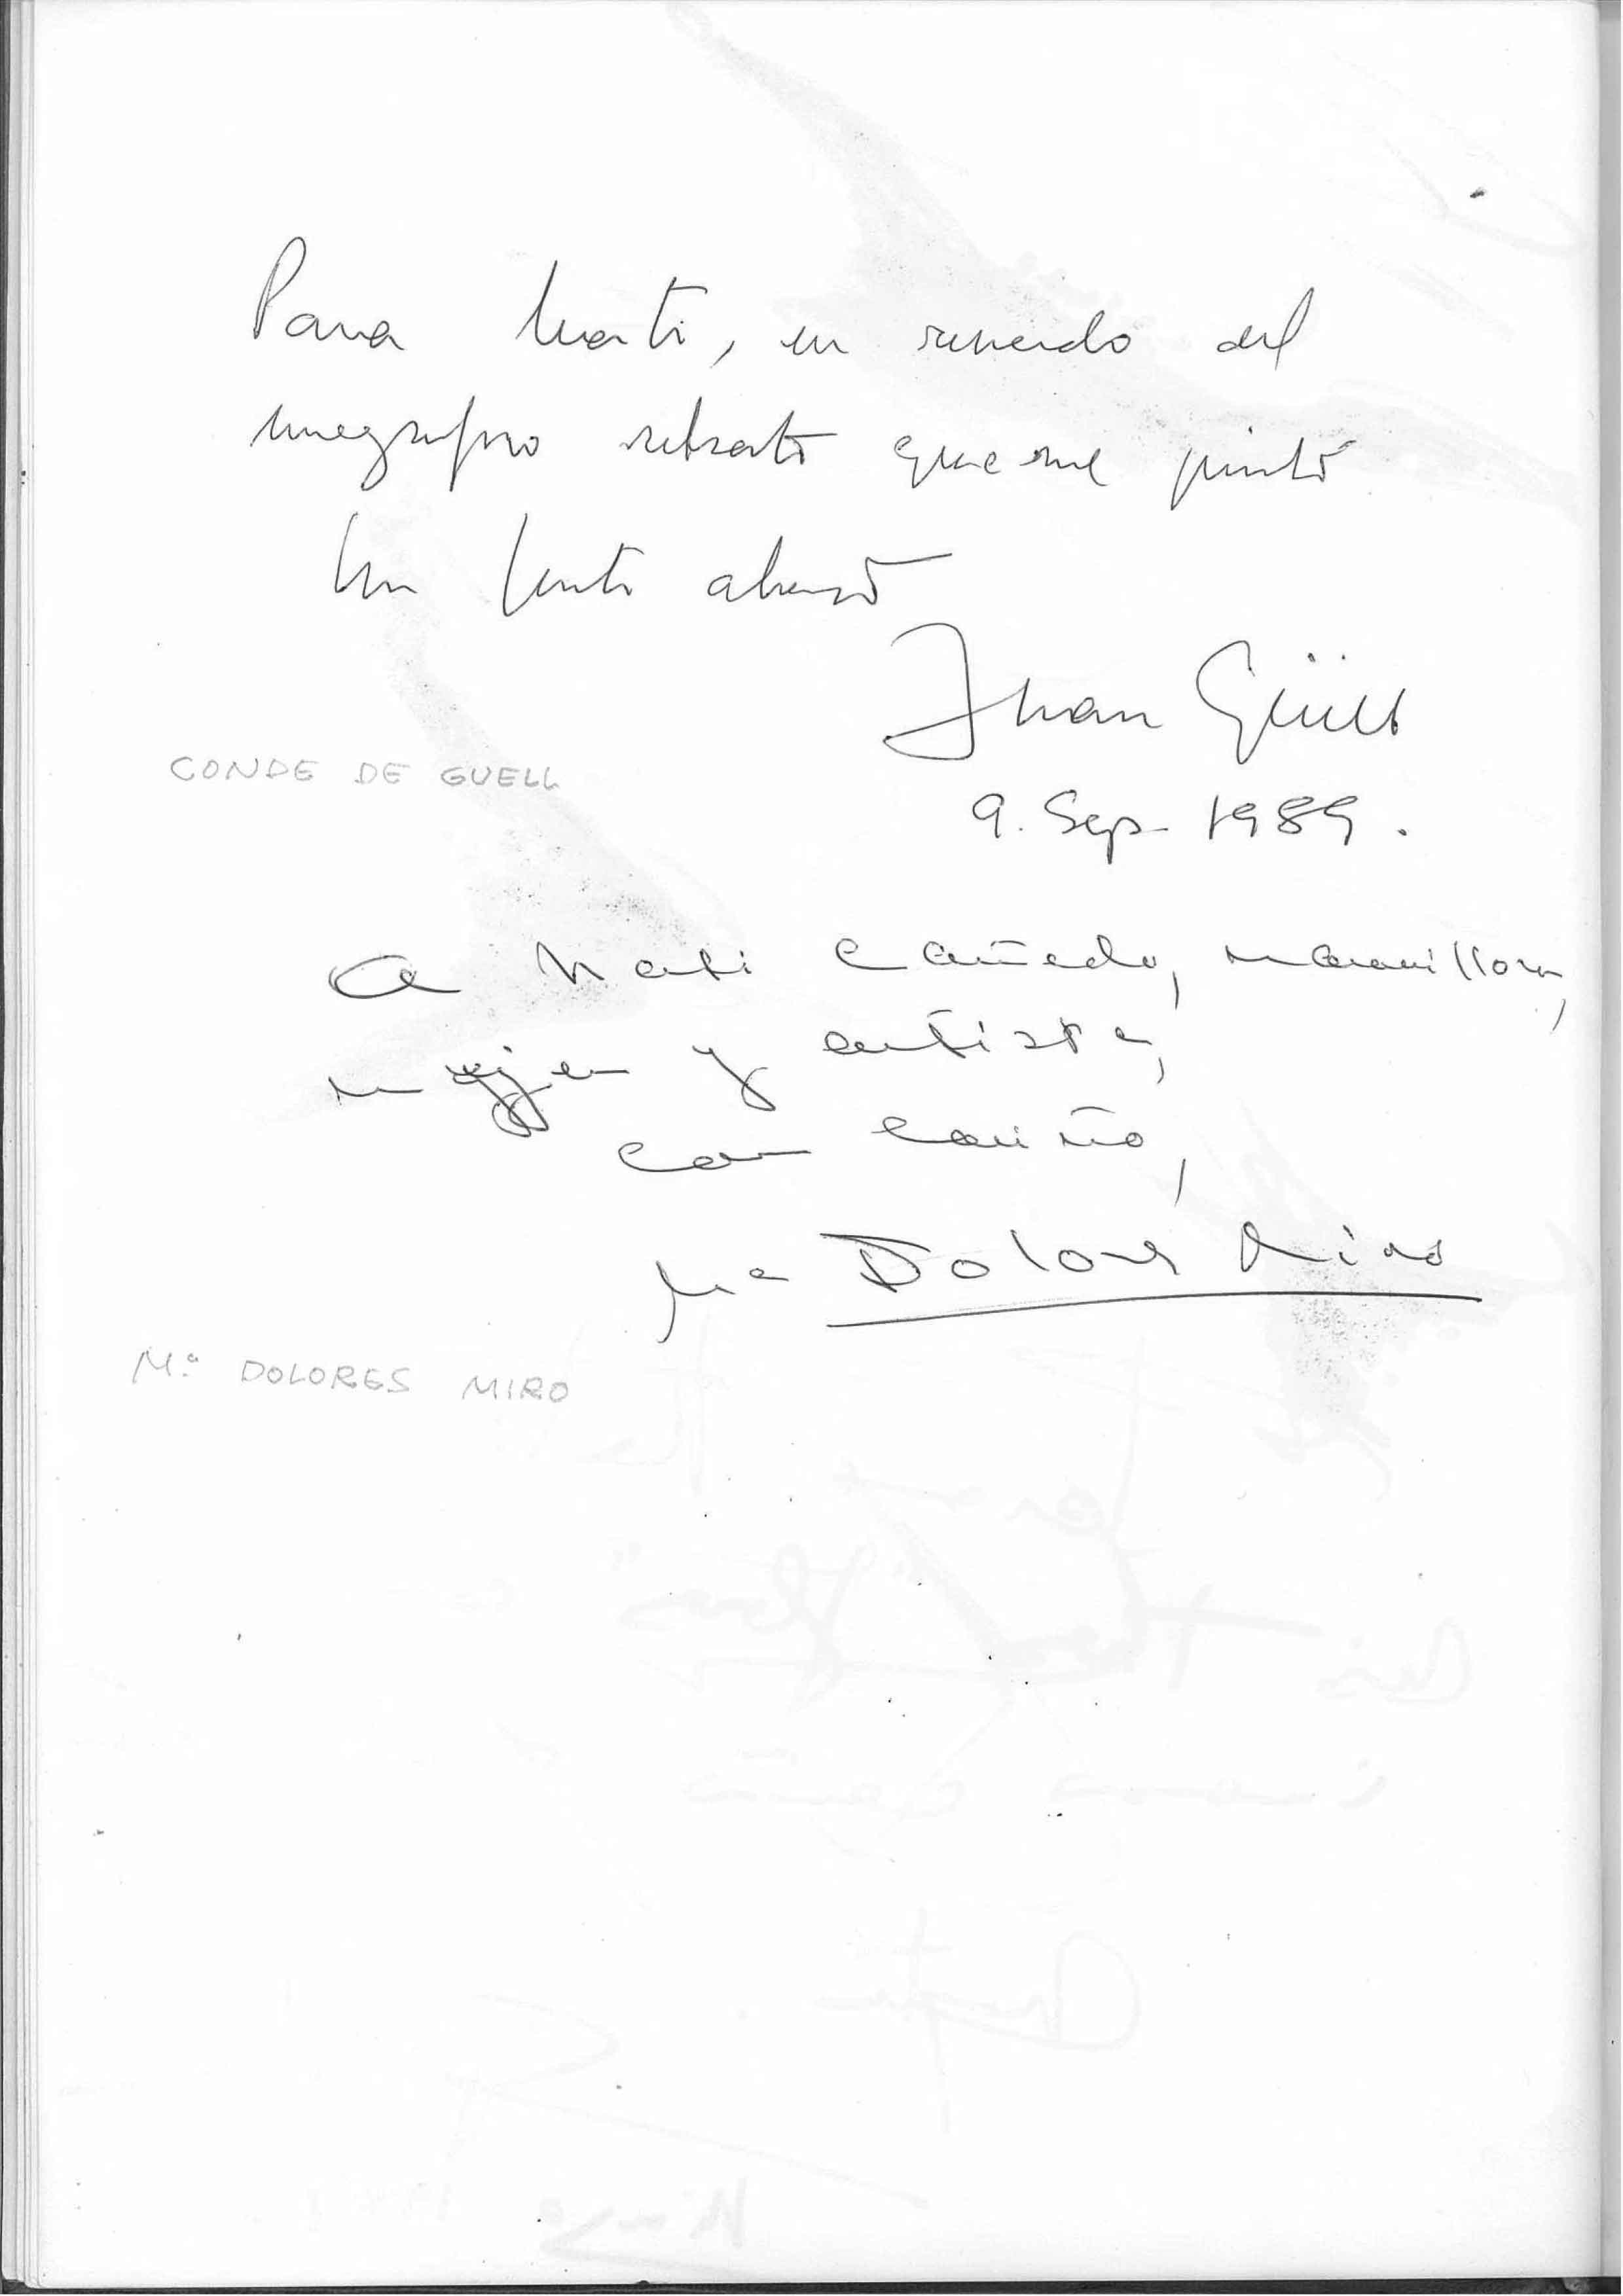 Para Nati, en recuerdo del
magnífico retrato que me pintó
Un fuerte abrazo
Juan Güell
CONDE DE GUELL
9. Sep. 1989.
a Nati Cañedo, maravillosa,
mujer y artista,
con cariño,
Mª Dolores Miró
Mª DOLORES MIRO